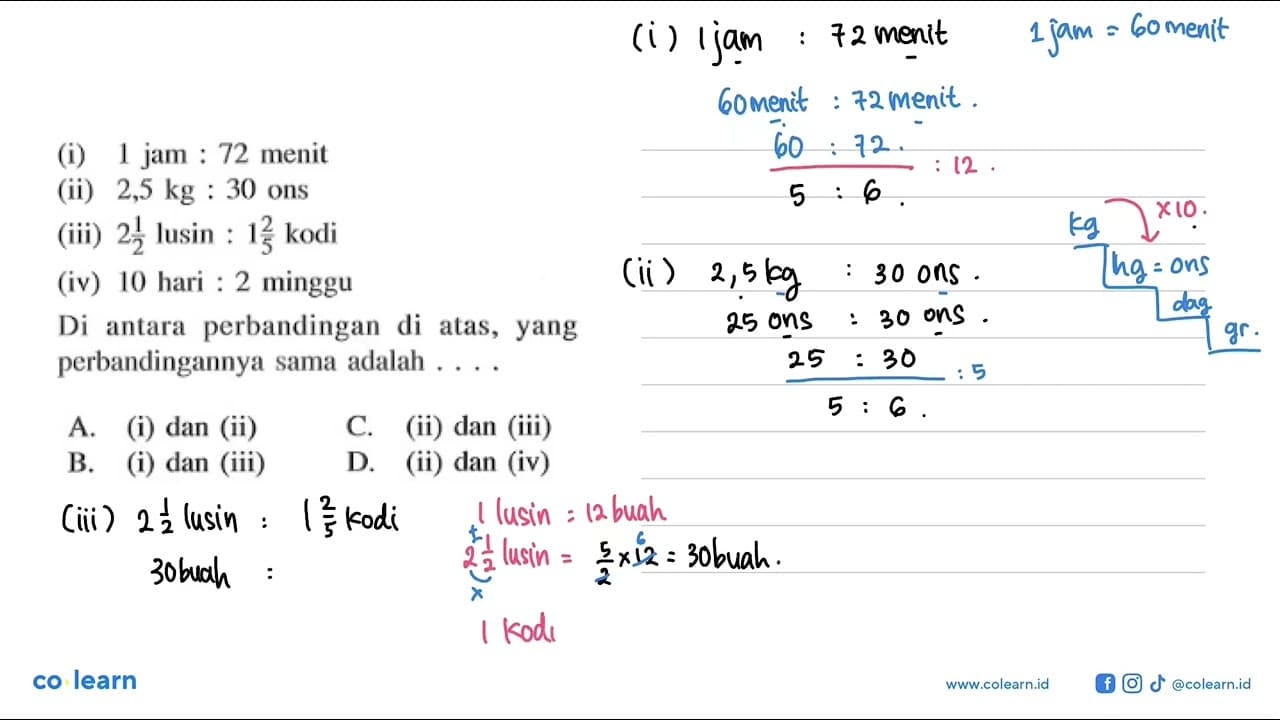 (i) 1 jam : 72 menit
(ii) 2,5 kg : 30 ons
(iii) 2 1/2 lusin : 1 2/5 kodi
(iv) 10 hari : 2 minggu
Di antara perbandingan di atas, yang
perbandingannya sama adalah . . . .
A. (i) dan (ii) C. (ii) dan (iii)
B. (i) dan (iii) D. (ii) dan (iv)
(i) 1 jam : 72 menit
1 jam = 60 menit
60 menit : 72 menit.
60 : 72.
: 12.
5 : 6.
(ii) 2,5 kg : 30 ons.
25 ons : 30 ons.
25 : 30
: 5
5 : 6.
x10.
kg
hg = ons
dag
gr.
(iii) 2 1/2 lusin : 1 2/5 kodi
30 buah :
1 lusin = 12 buah
+
2 1/2 lusin = 5/2 x 12 = 30 buah.
6
x
1 Kodi
co learn
www.colearn.id
@colearn.id